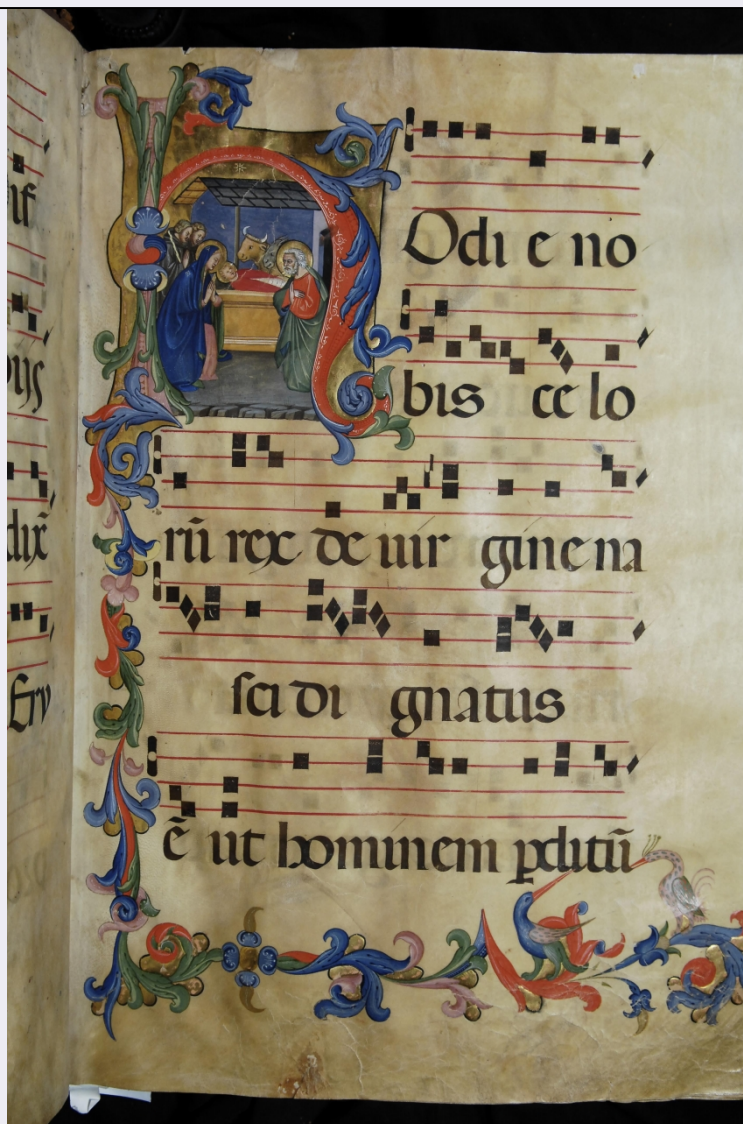 HOdi e no
bis ce lo
rū rex de uir gine na
sci di gnatus
ē ut hominem ꝑditū